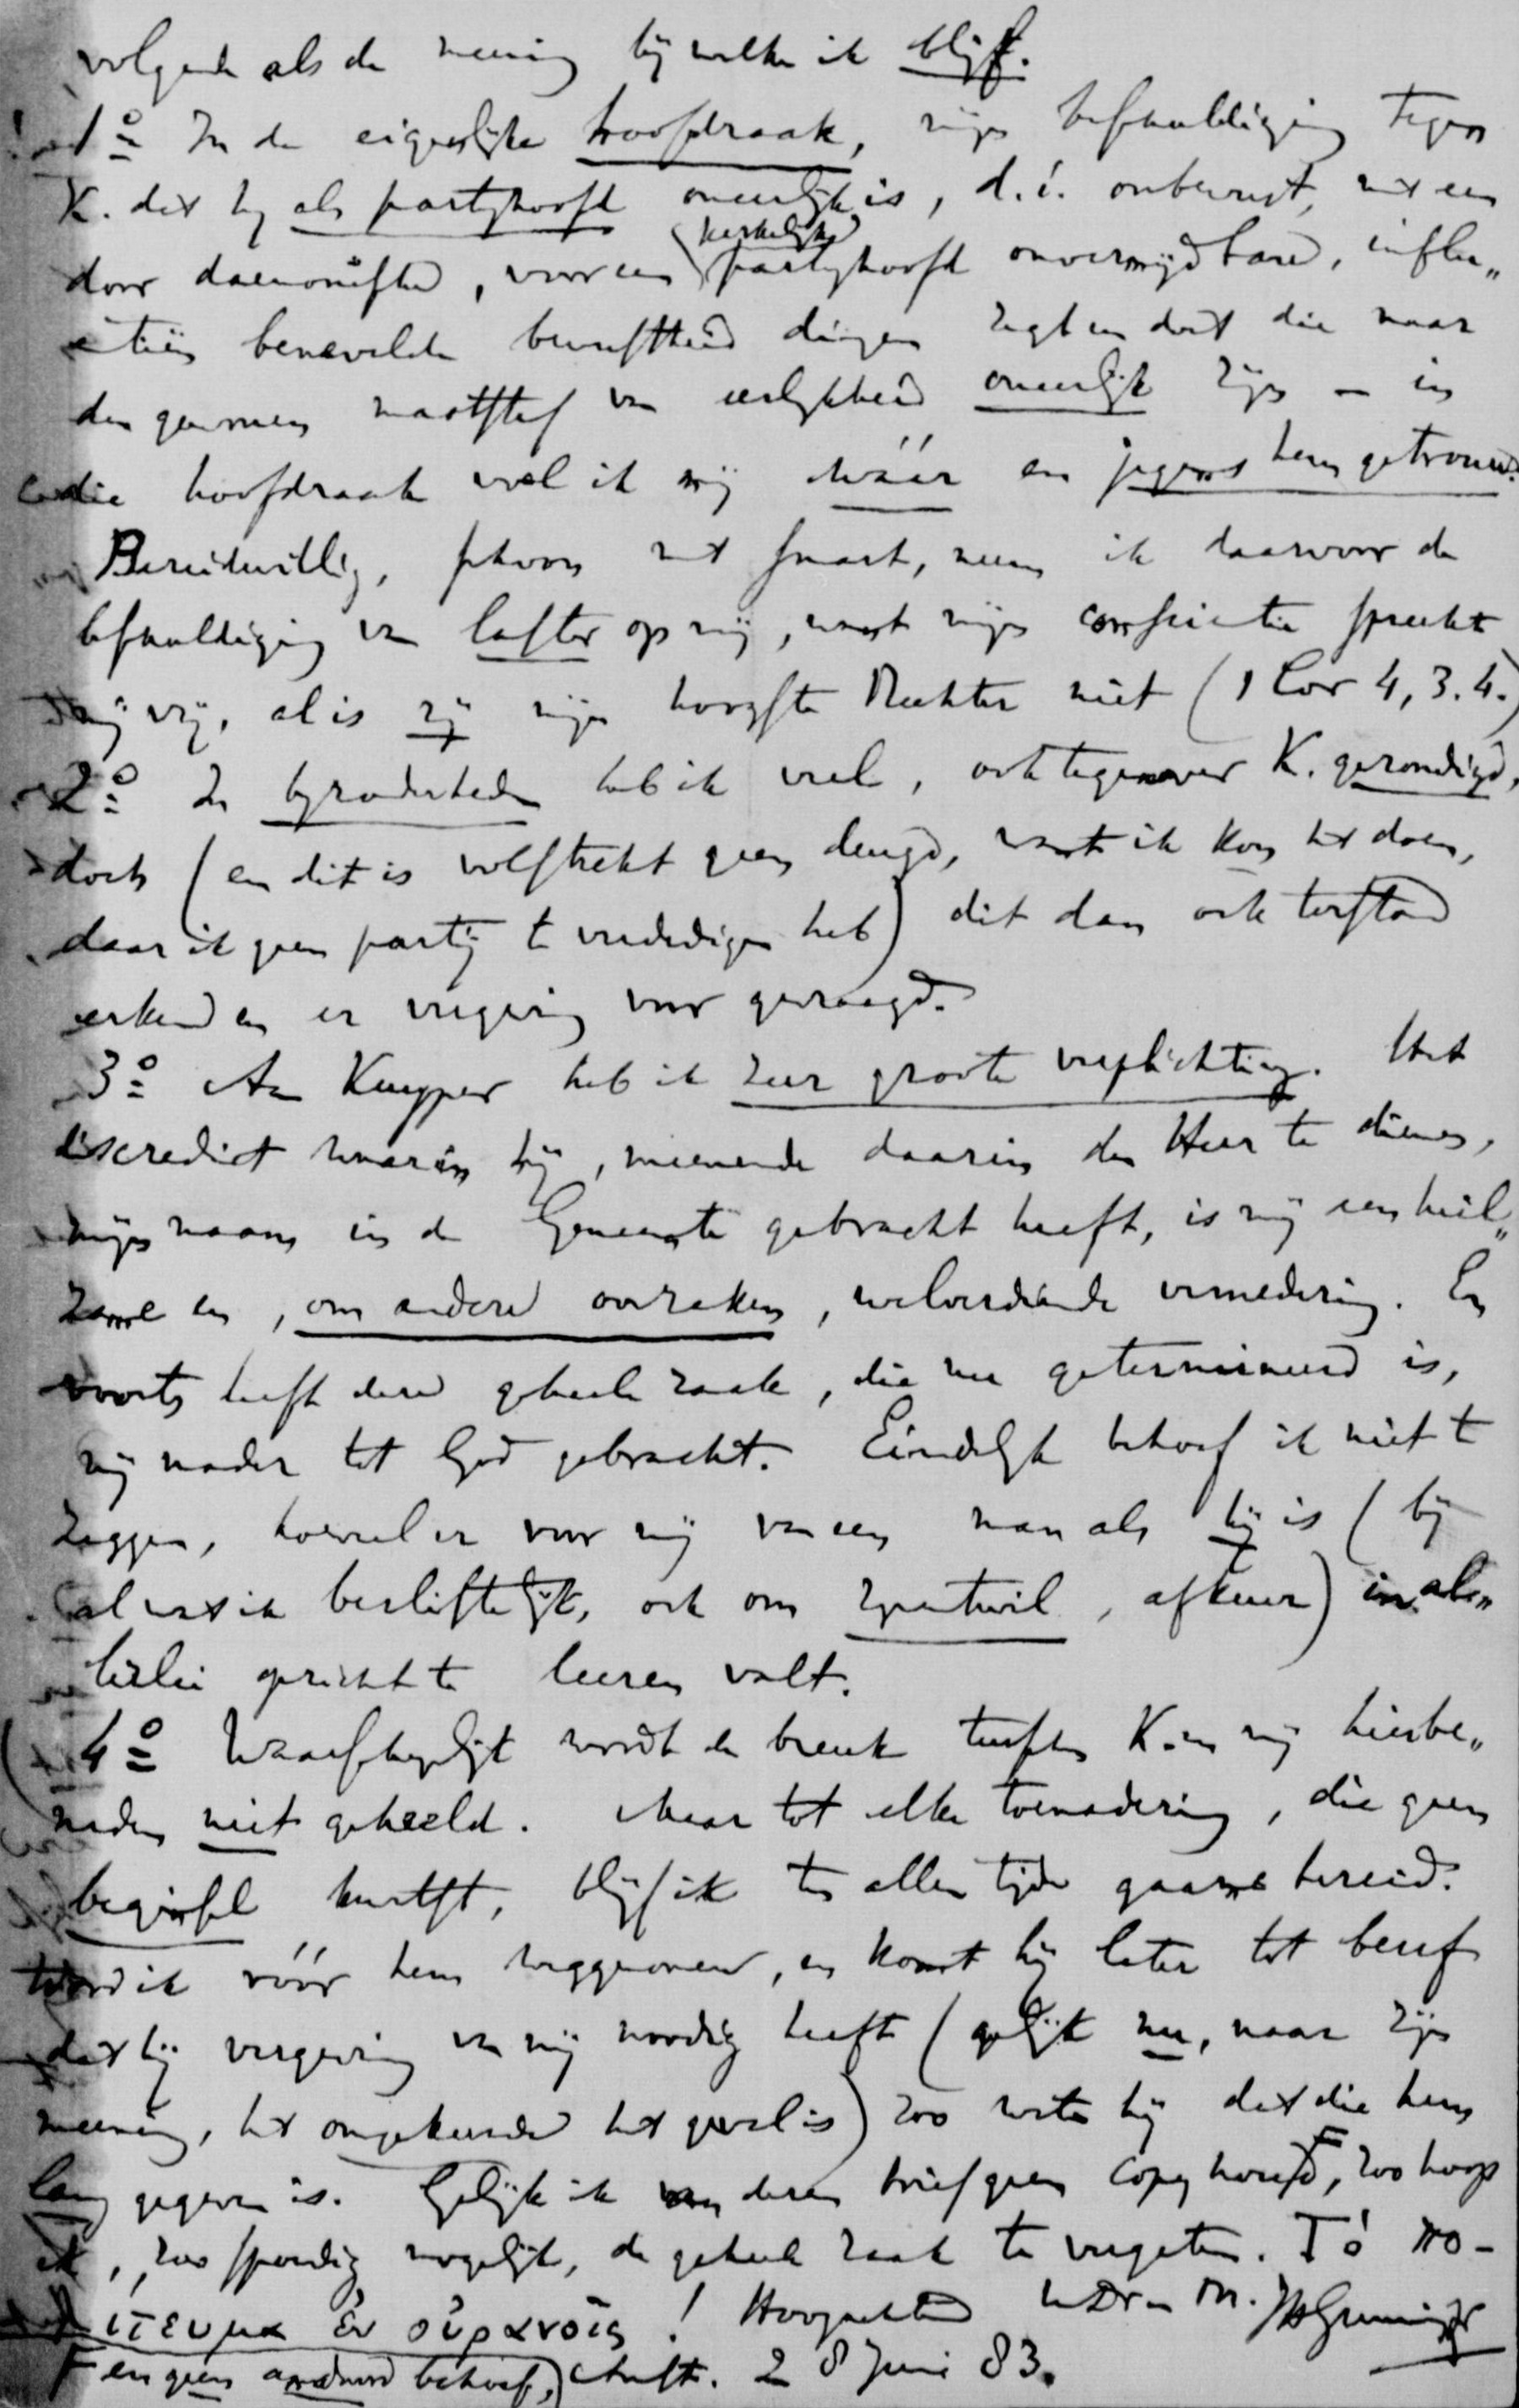 volgende als de meening bij welke ik blijf.
1o In de eigenlijke hoofdzaak, mijn beschuldiging tegen
K. dat hij als partijhoofd oneerlijk is, d.i. onbewust, met een
door daemonische, voor een kerkelijk partijhoofd onvermijdbare, influ„
entiën benevelde bewustheid dingen zegt en doet die naar
den gewonen maatstaf van eerlijkheid oneerlijk zijn – in
die hoofdzaak voel ik mij wáár en jegens hem getrouw.
Bereidwillig, schoon met smart, neem ik daarvoor de
beschuldiging van laster op mij, want mijn conscientie spreekt
mij vrij, al is zij mijn hoogste Rechter niet (1 Cor 4, 3. 4.)
2o In bijzonderheden heb ik veel, ook tegenover K. gezondigd,
doch (en dit is volstrekt geen deugd, want ik kon het doen,
daar ik geen partij te verdedigen heb) dit dan ook terstond
erkend en er vergeving voor gevraagd.
3o Aan Kuyper heb ik zeer groote verplichting. Het
discrediet waarin hij, meenende daarin den Heer te dienen,
mijn naam in de Gemeente gebracht heeft, is mij een heil„
zame en, om andere oorzaken, welverdiende vernedering. En
voorts heeft deze geheele zaak, die nu getermineerd is,
mij nader tot God gebracht. Eindelijk behoef ik niet te
zeggen, hoeveel er voor mij van een man als hij is (bij
al wat ik beslistelijk, ook om zijnentwil, afkeur) in al„
lerlei opzicht te leeren valt.
4o Waarschijnlijk wordt de breuk tusschen K. en mij hierbe„
neden niet geheeld. Maar tot elke toenadering, die geen
beginsel kwetst, blijf ik ten allen tijde gaarne bereid.
Word ik vóór hem weggenomen, en komt hij later tot besef
dat hij vergeving van mij noodig heeft (gelijk nu, naar zijn
meening, het omgekeerde het geval is) zoo wete hij dat die hem
lang gegeven is. Gelijk ik van dezen brief geen copy houd F, zoo hoop
ik, zoo spoedig mogelijk, de geheele zaak te vergeten. Τό πο-
λίτευμα ἐν οὐρανοῖς! Hoogachtend Uw Dr. JHGunning Jr
F en geen antwoord behoef,) 28 Juni 83.